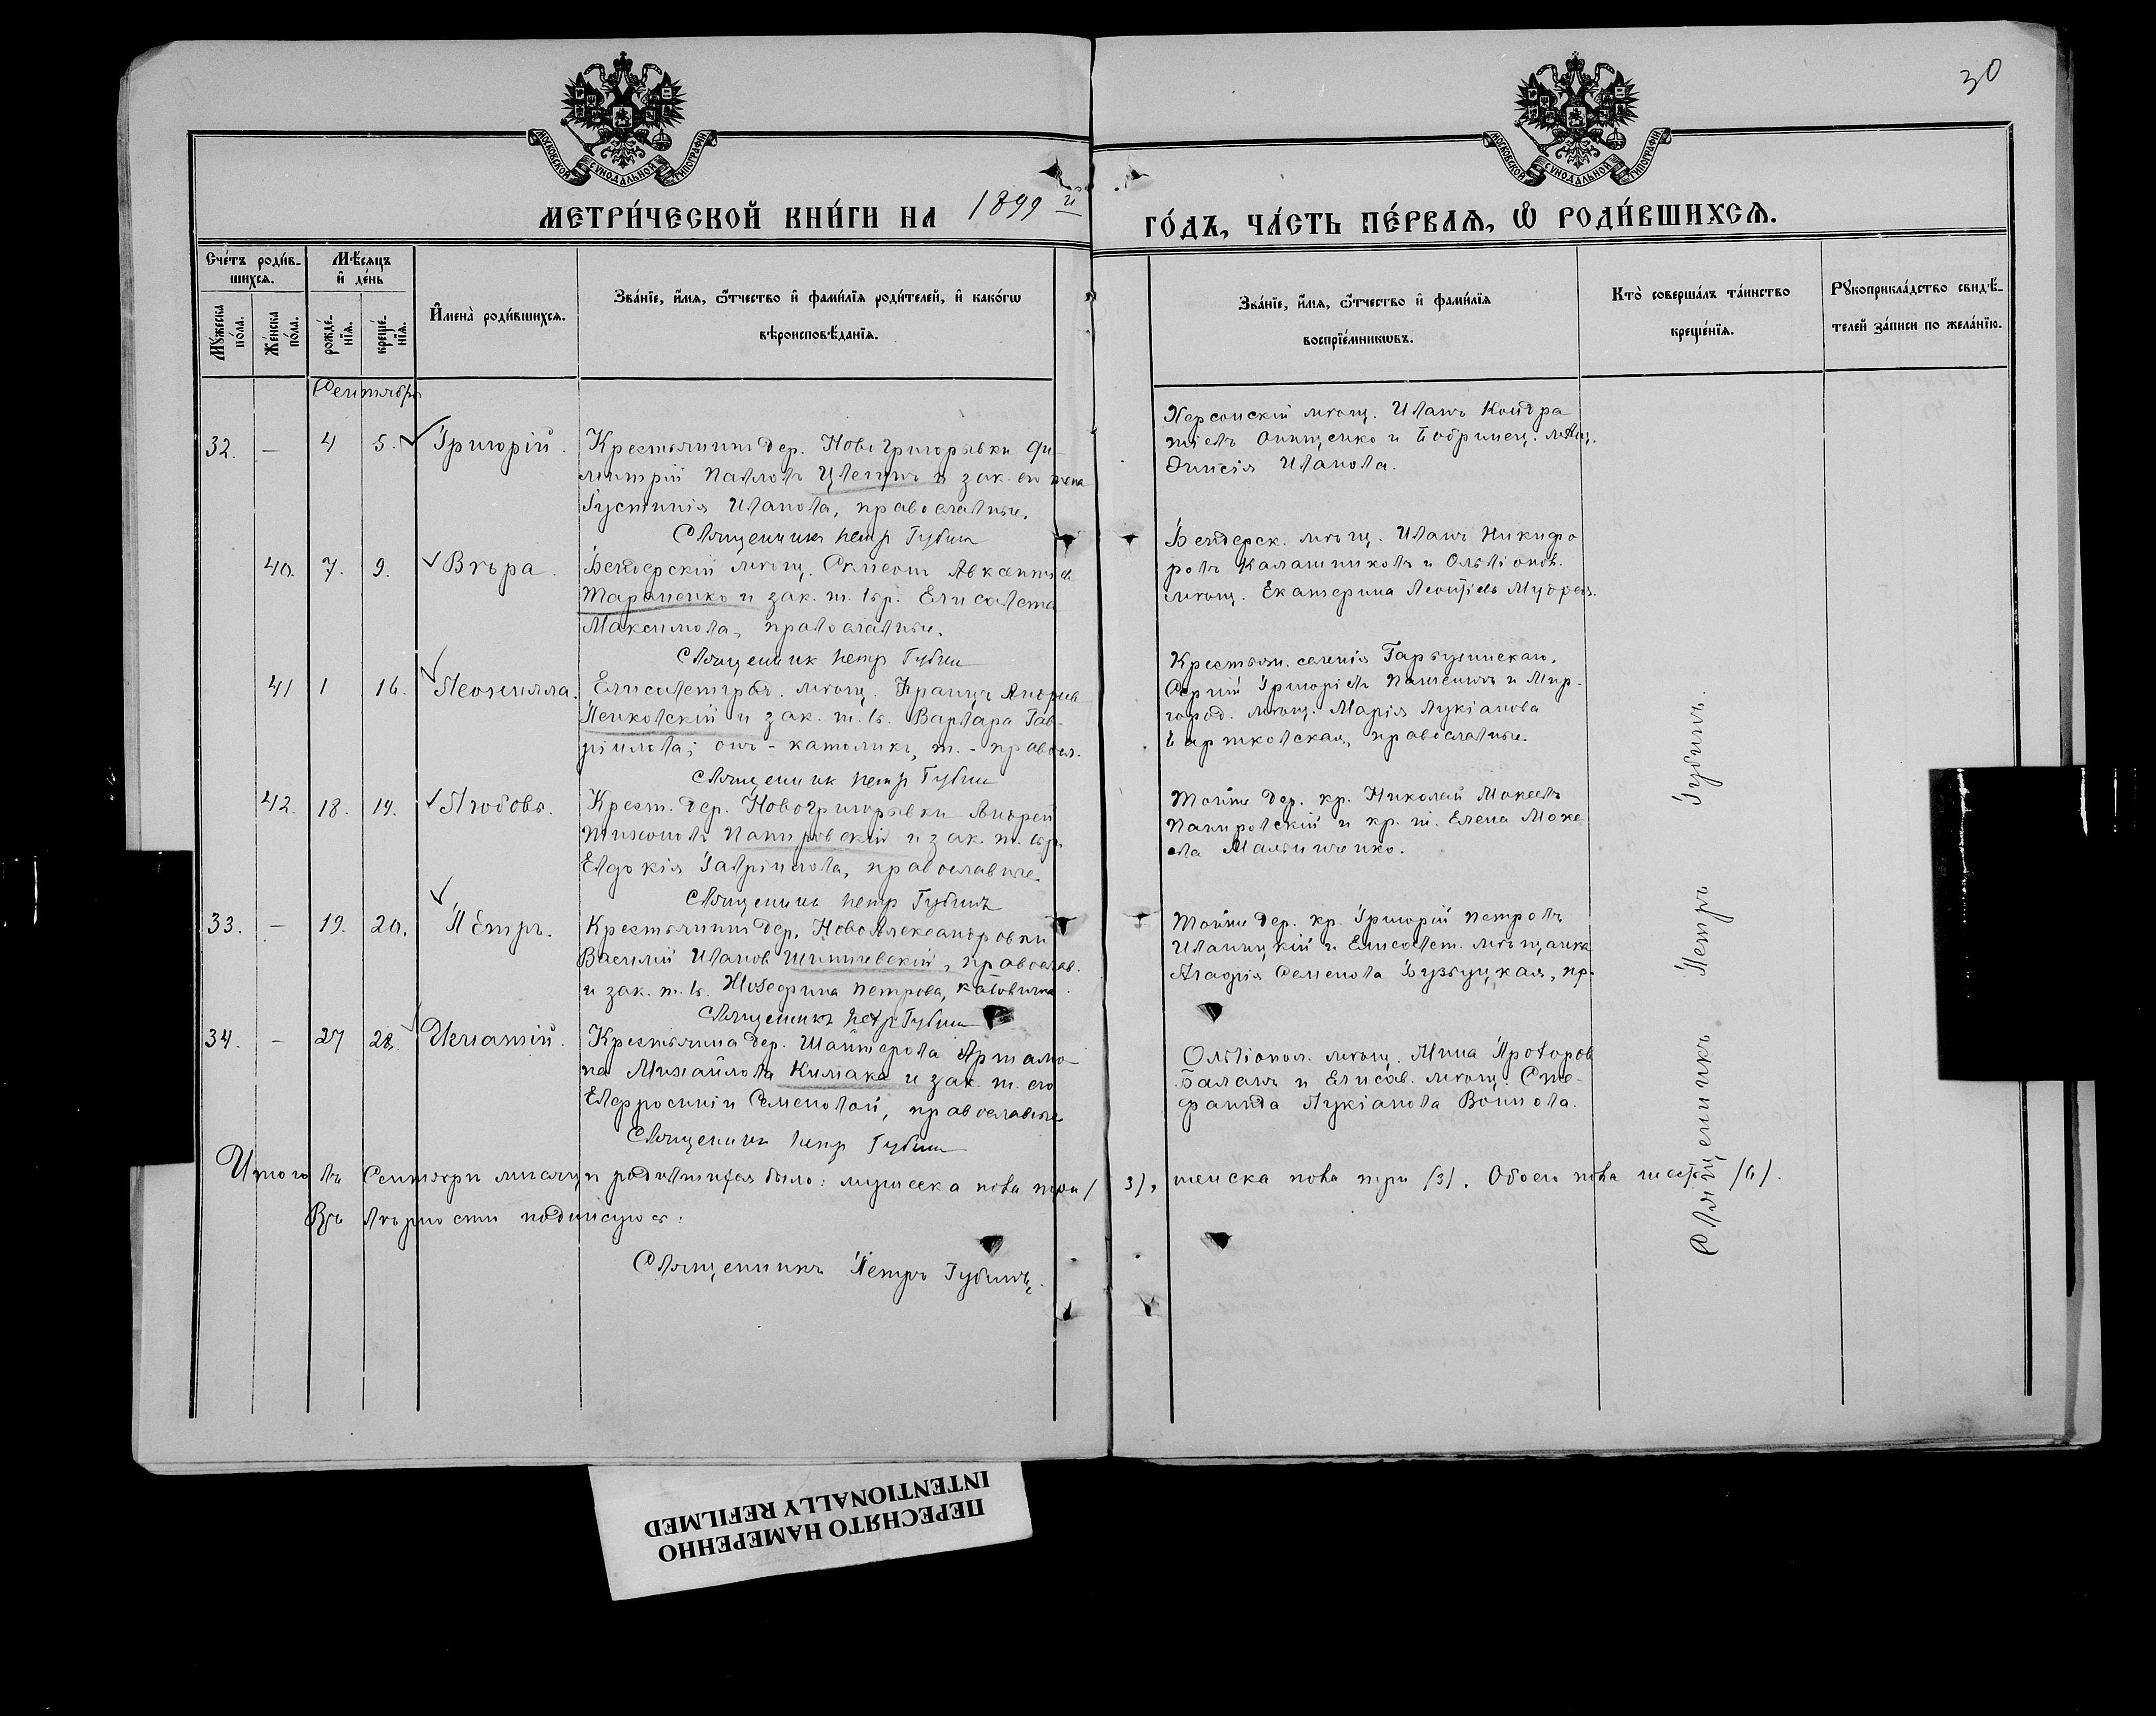 30
МОСКОВСКОЙ СУНОДАЛЬНОЙ ТИПОГРАФІИ
МОСКОВСКОЙ СУНОДАЛЬНОЙ ТИПОГРАФІИ
МЕТРИ́ЧЕСКОЙ КНИ́ГИ НА 1899 й ГО́ДЪ, ЧА́СТЬ ПЕ́РВАѦ, Ѽ РОДИ́ВШИХСѦ.
Счетъ родив-
шихся.
Мѣсяцъ
и день
Мужеска
пола.
Женска
пола.
рожде-
нія.
креще-
нія.
Имена родившихся.
Званіе, имя, отчество и фамилія родителей, и какогѡ
вѣроисповѣданія.
Званіе, имя, отчество и фамилія
воспріемникѡвъ.
Кто совершалъ таинство
крещенія.
Рукоприкладство свидѣ-
телей записи по желанію.
Сентябрь
32. — 4 5. Григорій. Крестьянинъ дер. Новогригорьевки Ди-
митрій Павловъ и зак. его жена
Іустинія Иванова, православные.
Священникъ Петръ Губинъ
Херсонскій мѣщ. Иванъ Кондра
тіевъ Онищенко и Бобринец. мѣщ.
Иванова.
40. 7. 9. Вѣра. Бендерскій мѣщ. Авксентіев
Тараненко и зак. ж. его Елисавета
Максимова, православные.
Священник Петр Губин
Бендерск. мѣщ. Иванъ Никифо
ровъ Калашниковъ и Ольвіопол.
мѣщ. Екатерина Леонтіева
41 1 16. Неонилла. Елисаветград. мѣщ. Францъ Андреев
и зак. ж. его Варвара Гав-
ріилова; онъ - католикъ, ж. - правосл.
Священник Петр Губин
Крестьян. селенія
Сергій Григоріев и Мир-
город. мѣщ. Марія Лукіанова
православные.
42. 18. 19. Любовь. Крест. дер. Новогригорьевки Андрей
Тихоновъ Папировскій и зак. ж. его
Евдокія Гавріилова, православные
Священникъ Петр Губинъ
Той же дер. кр. Николай Мокеевъ
Папировскій и кр. ж. Елена Моке
ева
33. — 19. 20. Пётръ. Крестьянинъ дер. Новоалександровки
Василій Иванов православ.
и зак. ж. его Жозефина Петрова, католичка.
Священникъ Петр Губин
Той же дер. кр. Григорій Петровъ
Иваницкій и Елисавет. мѣщанка
Агафія Семенова пр.
34. — 27 28. Игнатій. Крестьянина дер. Артамо-
на Михайлова Килмака и зак. ж. его
Евфросиніи Семеновой, православные
Священникъ Петр Губин
Ольвіопол. мѣщ. Мина
Балан и Елисав. мѣщ. Сте-
фанида Лукіанова Воинова.
Священникъ Петръ Губинъ.
Итого въ Сентябрѣ мѣсяцѣ родившихся было: мужеска пола три /3/, женска пола три /3/. Обоего пола шесть /6/.
Въ вѣрности подписуюсь:
Священникъ Петръ Губинъ.
ПЕРЕСНЯТО НАМЕРЕННО
INTENTIONALLY REFILMED